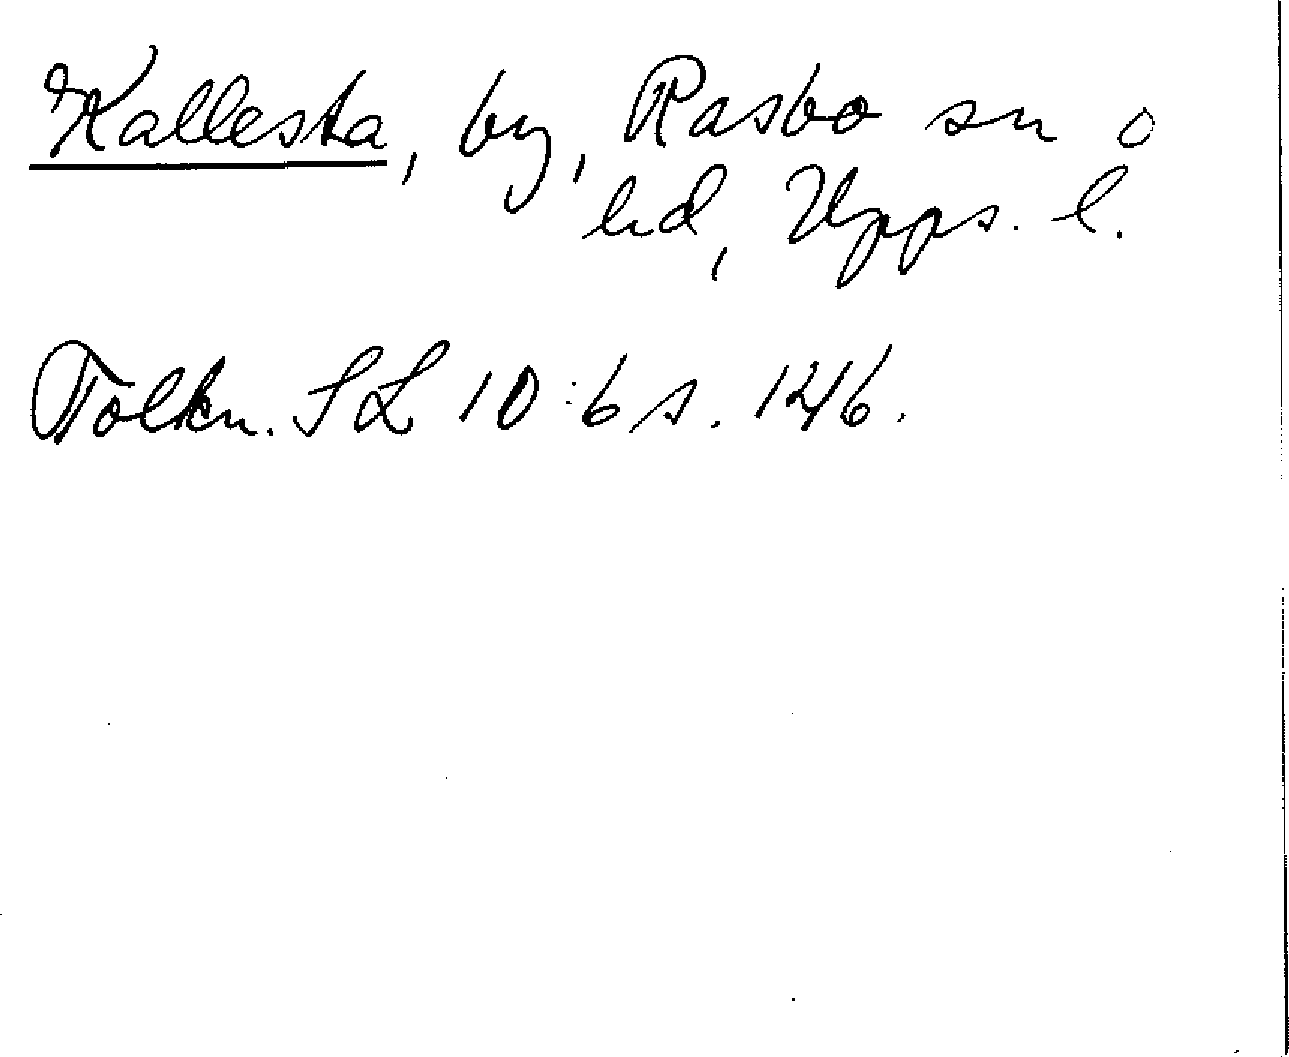 Kallesta, by, Rasbo sn o
hd, Upps. l.
Tolkn. SL 10:6 s. 146.